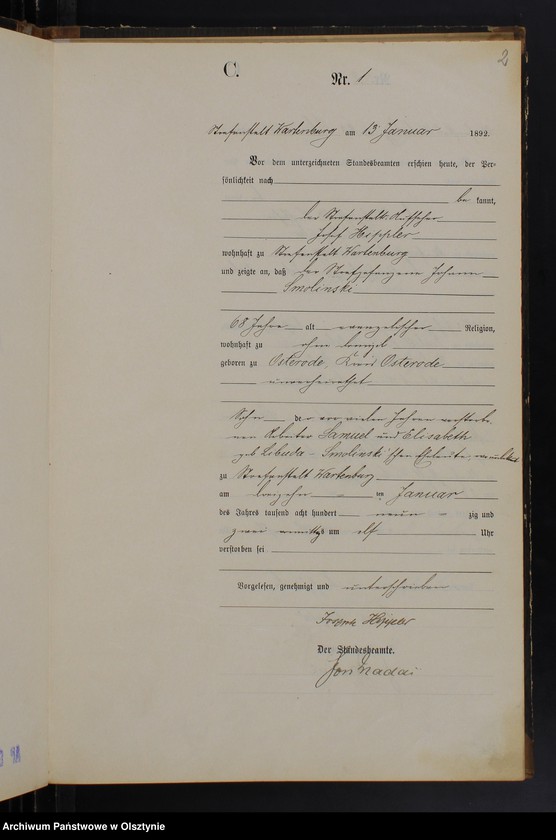 2
C.
Nr. 1
Strafanstalt Wartenburg am 13 Januar 1892.
Vor dem unterzeichneten Standesbeamten erschien heute, der Per-
sönlichkeit nach
be kannt,
der Strafanstalts-Aufseher
Josef Hippler
wohnhaft zu Strafanstalt Wartenburg
und zeigte an, daß der Strafgefangene Johann
Smolinski
68 Jahre alt evangelischer Religion,
wohnhaft zu ohne
geboren zu Osterode, Kreis Osterode
unverheirathet
Sohn der vor vielen Jahren verstorbe-
nen Arbeiter Samuel und Elisabeth
geb Libuda - Smolinski'schen Eheleute,
zu Strafanstalt Wartenburg
am ten Januar
des Jahres tausend acht hundert neun zig und
zwei vormittags um elf Uhr
verstorben sei
Vorgelesen, genehmigt und unterschrieben
Joseph Hippler
Der Standesbeamte.
Archiwum Państwowe w Olsztynie